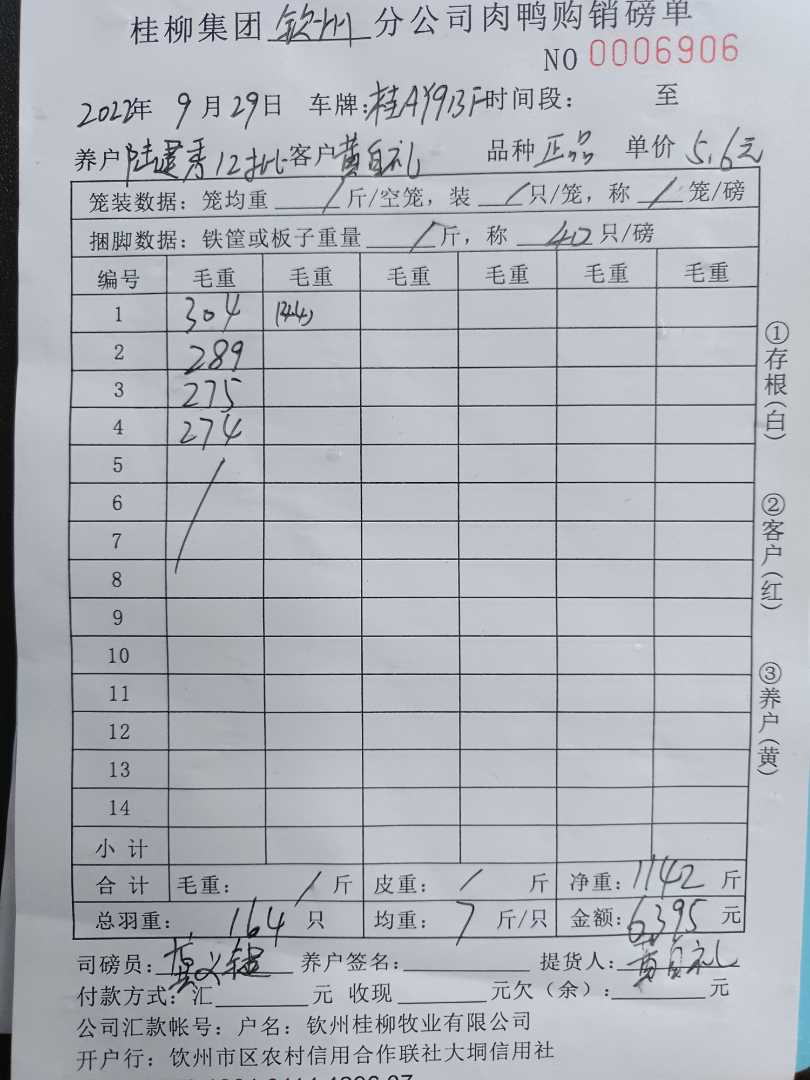 桂柳集团 钦州 分公司肉鸭购销磅单
NO 0006906
2022年 9月29日 车牌:桂AY913F时间段: 至
养户陆建秀12批 客户黄自礼 品种 正品 单价 5.6元
笼装数据: 笼均重 / 斤/空笼, 装 / 只/笼, 称 / 笼/磅
捆脚数据: 铁筐或板子重量 / 斤, 称 40 只/磅
编号 毛重 毛重 毛重 毛重 毛重 毛重
1 304 (44)
2 289
3 275
4 274
5
6
7
8
9
10
11
12
13
14
小 计
合 计 毛重: / 斤 皮重: / 斤 净重: 1142 斤
总羽重: 164 只 均重: 7 斤/只 金额: 6395 元
司磅员: 养户签名: 提货人: 黄自礼
付款方式: 汇 元 收现 元欠(余): 元
公司汇款帐号: 户名: 钦州桂柳牧业有限公司
开户行: 钦州市区农村信用合作联社大垌信用社
①存根(白)
②客户(红)
③养户(黄)